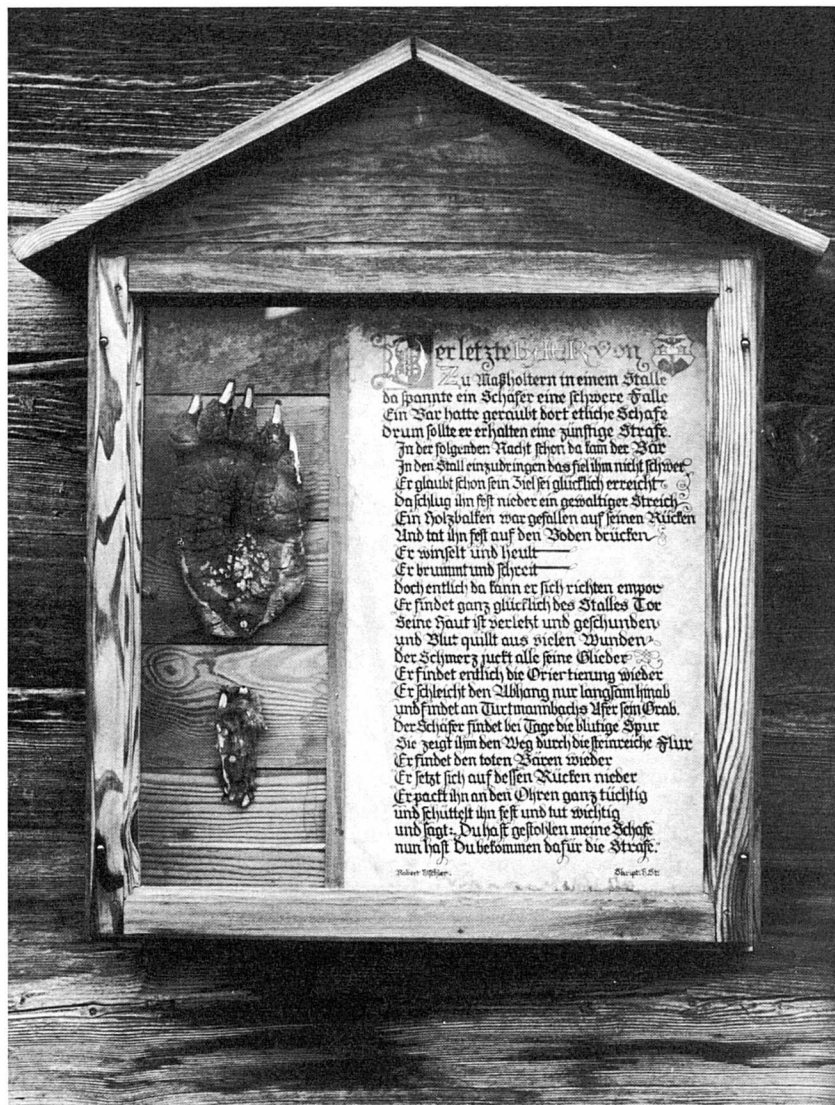 Der letzte BÄR von
Zu Maßholtern in einem Stalle
da spannte ein Schäfer eine schwere Falle
Ein Bär hatte geraubt dort etliche Schafe
drum sollte er erhalten eine zünftige Strafe.
In der folgenden Nacht schon da kam der Bär
In den Stall einzudringen das fiel ihm nicht schwer
Er glaubt schon sein Ziel sei glücklich erreicht
da schlug ihn fest nieder ein gewaltiger Streich
Ein Holzbalken war gefallen auf seinen Rücken
Und tat ihn fest auf den Boden drücken
Er winselt und heult
Er brummt und schreit
doch entlich da kann er sich richten empor
Er findet ganz glücklich des Stalles Tor
Seine Haut ist verletzt und geschunden
und Blut quillt aus vielen Wunden
der Schmerz juckt alle seine Glieder
Er findet entlich die Orientierung wieder
Er schleicht den Abhang nur langsam hinab
und findet an Turtmannbachs Ufer sein Grab.
Der Schäfer findet bei Tage die blutige Spur
Sie zeigt ihm den Weg durch die steinreiche Flur
Er findet den toten Bären wieder
Er setzt sich auf dessen Rücken nieder
Er packt ihn an den Ohren ganz tüchtig
und schüttelt ihn fest und tut wichtig
und sagt: „Du hast gestohlen meine Schafe
nun hast Du bekommen dafür die Strafe."
Robert